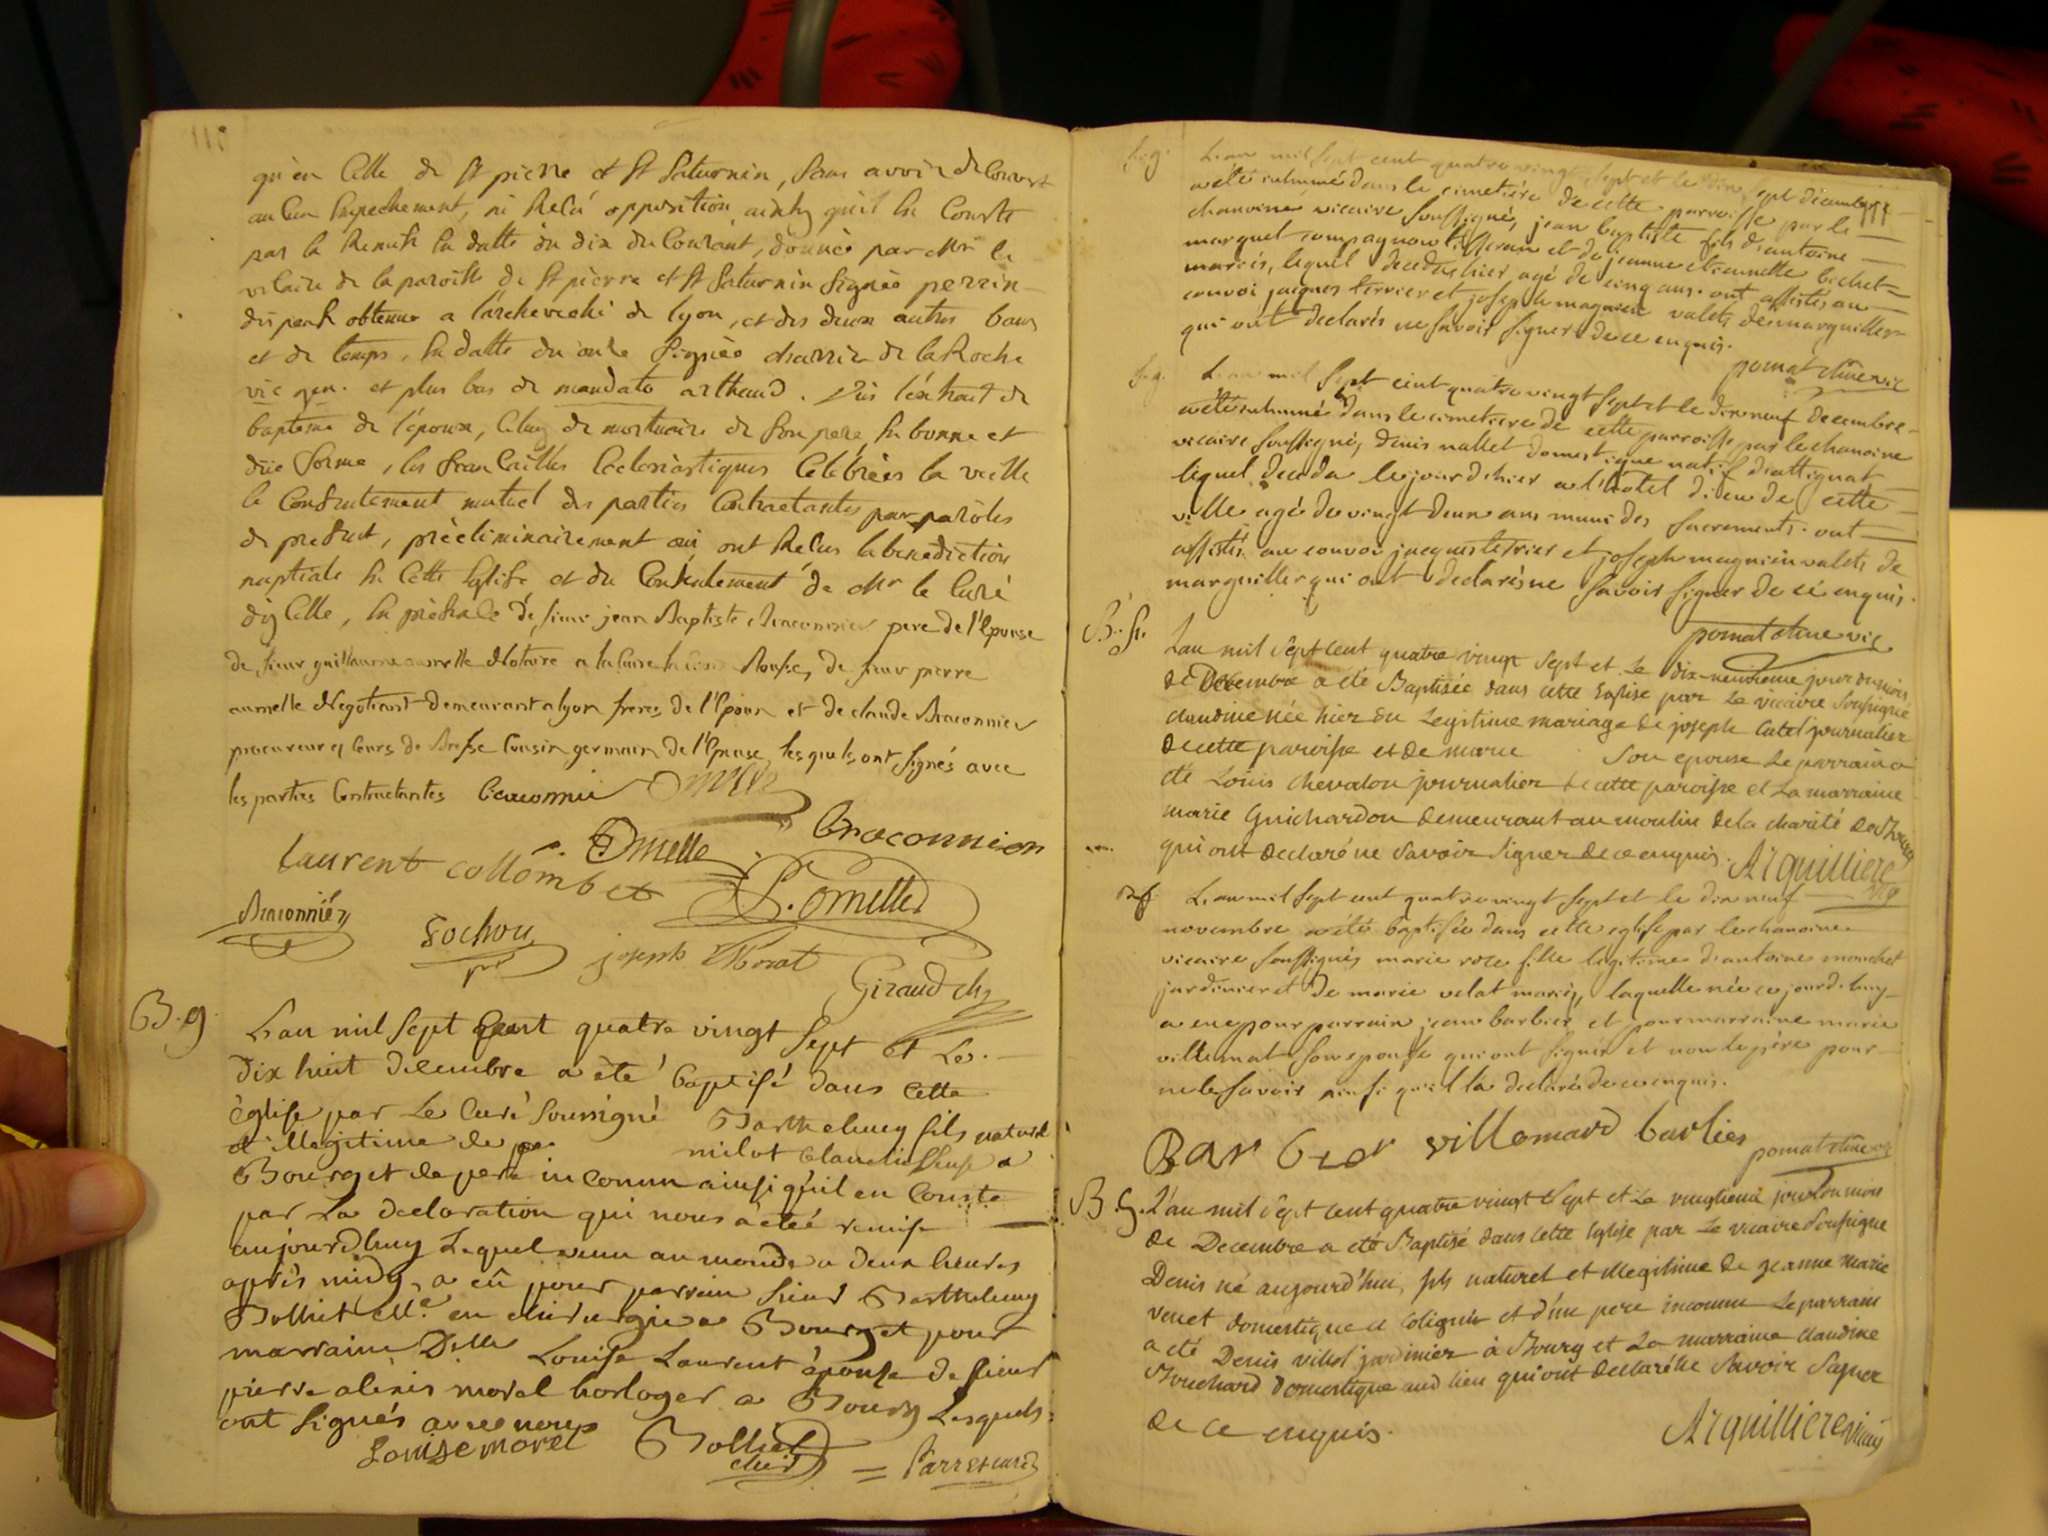 qu'en Celle de St pierre et St Saturnin, sans avoir decouvert
aucun Empechement, ni Recû opposition ainsy qu'il En Conste
par la Remise En datte du dix du Courant, donnée par Mr le
vicaire de la paroisse de St pierre et St Saturnin Signée perrin
dispense obtenue a l'archeveché de lyon, et des deux autres bans
et de temps, En datte du onze Signée charrier de la Roche
vic gen. et plus bas de mandato arthaud. Vûs l'éxtrait de
baptême de l'époux, Celuy de mortuaire de Son père En bonne et
düe forme, les fiancailles Ecclesiastiques Célébrées la veille
le Consentement mutuel des parties Contractantes par paroles
de present, prééliminairement ouï, ont Recus la bénédiction
nuptiale En Cette Eglise et du Consentement de Mr le Curé
d'jcelle, En présence de, sieur jean Baptiste Braconnier pere de l'Epouse
de, sieur guillaume aumelle Notaire a Bresse, de sieur pierre
aumelle Negotiant demeurant a lyon freres de l'Epoux et de claude Braconnier
procureur es Cours de Bresse Cousin germain de l'Epouse, lesquels, ont Signés avec
les parties Contractantes Braconnier Omelle
laurent collombet Omelle Braconnier
Braconnier Cochon joseph Morat P. Omelle
Giraud ch
B. g. L'an mil sept Cent quatre vingt sept et Le
dix huit decembre a été baptisé dans Cette
église par Le Curé soussigné Barthelemy fils naturel
et illegitime de milot Claudine a
Bourg et de pere inconnu ainsi qu'il en Conste
par La declaration qui nous a été remise
aujourdhuy Lequel venu au monde a deux heures
après midy, a eû pour parrain sieur Barthelemy
Bolliet Me. en chirurgie a Bourg et pour
marraine Delle Louise Laurent épouse de sieur
pierre alexis morel horloger a Bourg Lesquels
ont signés avec nous
Louise morel Bolliet chir = Parret curé
S. g. L'an mil sept cent quatre vingt sept et le dix sept decembre
a été inhumé dans le cimetière de cette parroisse par le
chanoine vicaire soussigné, jean baptiste fils d'antoine
marquet compagnon tisseran et de jeanne etiennette bechet
mariés, lequel deceda hier, agé de cinq ans. ont assistés au
convoi jacques terrier et joseph magnien valets de marguiller
qui ont declarés ne savoir signer de ce enquis.
pomat chne vic
S. g. L'an mil sept cent quatre vingt sept et le dix neuf decembre
a été inhumé dans le cimetiere de cette parroisse par le chanoine
vicaire soussigné, denis nallet domestique natif d'attignat
lequel deceda le jour d'hier a l'hotel dieu de cette
ville agé de vingt deux ans muni des sacrements. ont
assistés au convoi jacques terrier et joseph magnien valets de
marguiller qui ont declarés ne savoir signer de ce enquis.
pomat chne vic
B. f. L'an mil sept cent quatre vingt sept et le dix-neuvieme jour du mois
de Decembre a été Baptisée dans cette Eglise par Le vicaire soussigné
claudine née hier du Legitime mariage de joseph Catel journalier
de cette paroisse et de marie son epouse Le parrain a
été Louis Chevalon journalier de cette paroisse et La marraine
marie Guichardon demeurant au moulin de la charité de Bourg
qui ont declaré ne savoir signer de ce enquis. Arquilliere vic
L'an mil sept cent quatre vingt sept et le dix neuf
novembre a été baptisée dans cette eglise par le chanoine
vicaire soussigné, marie rose fille legitime d'antoine monchet
jardinier et de marie velat mariés, laquelle née ce jourdhuy
a eue pour parrain jean barbier et pour marraine marie
villemat son epouse qui ont signés et non le père pour
ne le savoir ainsi qu'il l'a declaré de ce enquis.
Barbier villemard barlier pomat chne vic
B. g. L'an mil sept cent quatre vingt sept et Le vingtieme jour du mois
de Decembre a été Baptisé dans cette Eglise par Le vicaire soussigné
Denis né aujourd'hui, fils naturel et illegitime de jeanne marie
venet domestique a Coligni et d'un pere inconnu Le parrain
a été Denis villet jardinier à Bourg et La marraine claudine
Bouchard domestique aud lieu qui ont declaré ne savoir signer
de ce enquis. Arquilliere vicaire